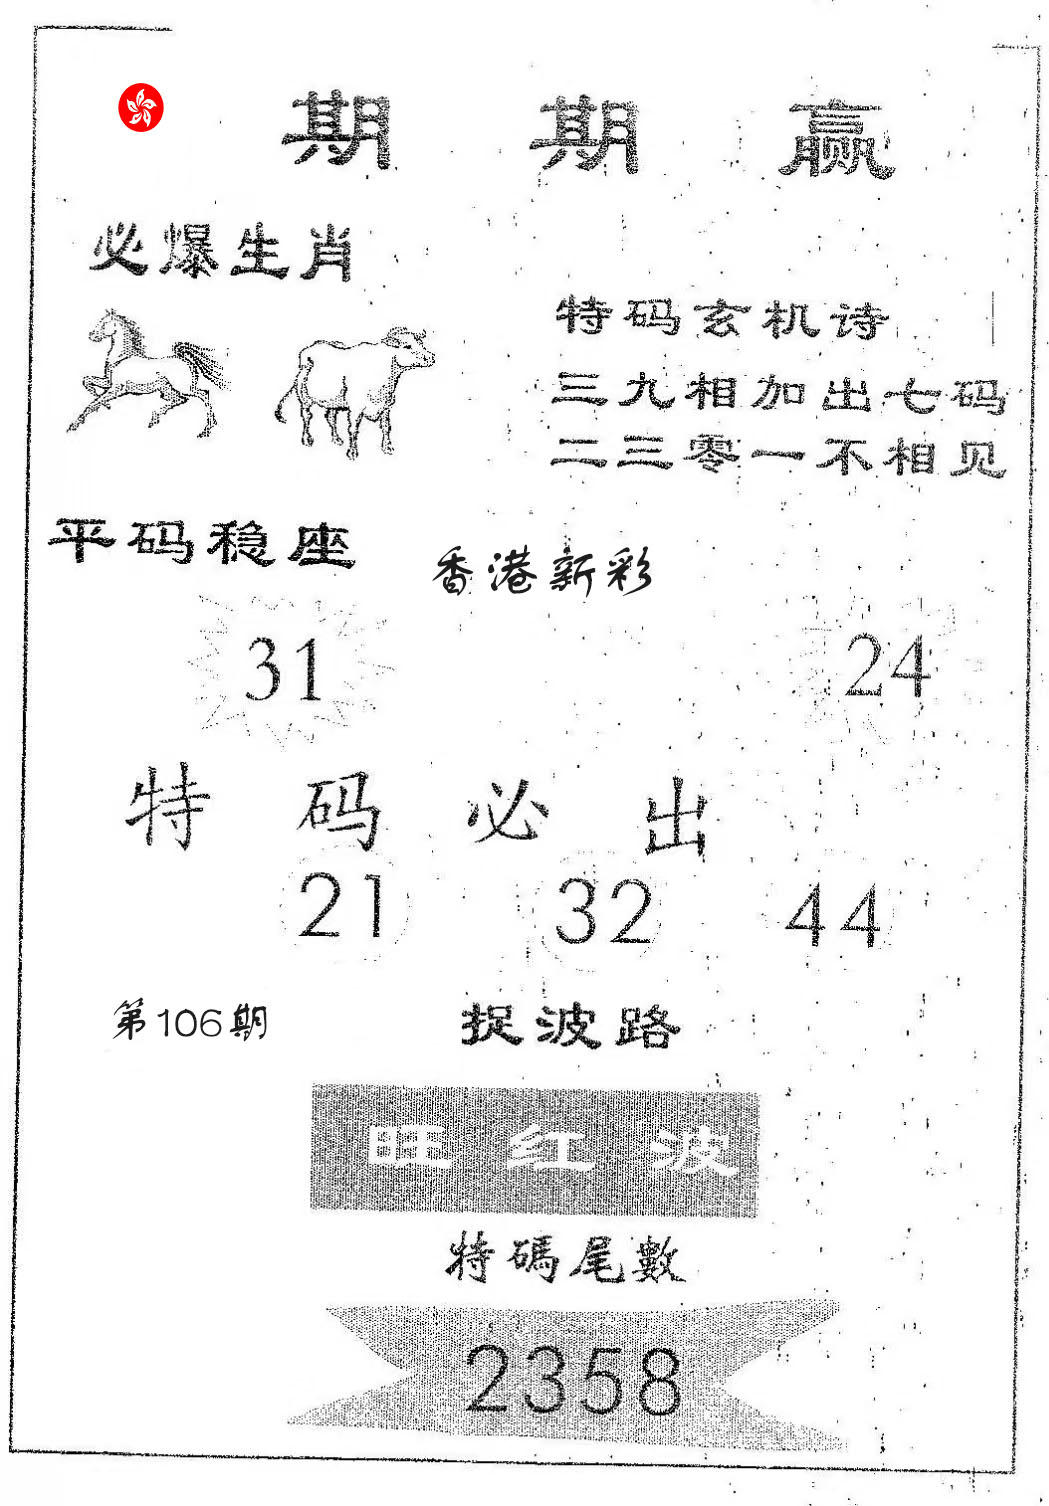 期期赢
必爆生肖
特码玄机诗
三九相加出七码
二三零一不相见
平码稳座
香港新彩
31 24
特码必出
21 32 44
第106期
捉波路
旺红波
特碼尾數
2358